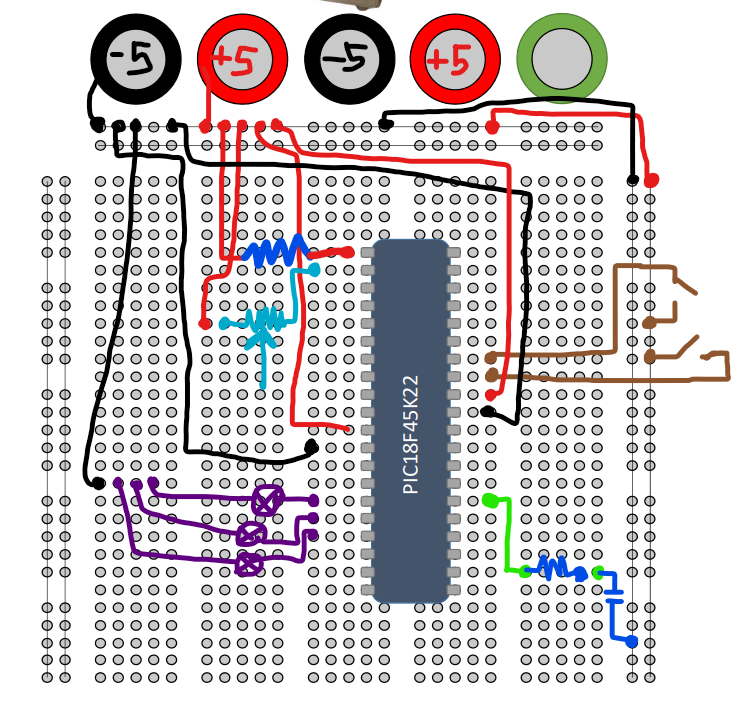 -5
+5
-5
+5
PIC18F45K22